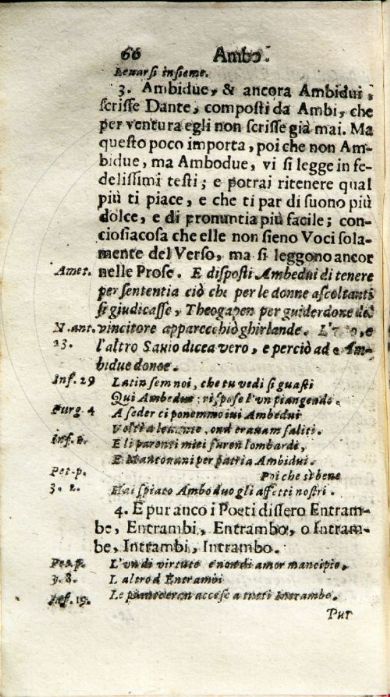 66 Ambo.
Levarsi insieme.
3. Ambidue, & ancora Ambidui,
scrisse Dante, composti da Ambi, che
per ventura egli non scrisse già mai. Ma
questo poco importa, poi che non Am-
bidue, ma Ambodue, vi si legge in fe-
delissimi testi; e potrai ritenere qual
più ti piace, e che ti par di suono più
dolce, e di pronuntia più facile; con-
ciosiacosa che elle non sieno Voci sola-
mente del Verso, ma si leggono ancor
Amet. nelle Prose. E disposti Ambedui di tenere
per sententia ciò che per le donne ascoltanti
si giudicasse, Theogapen per guiderdone del
N.ant. vincitore apparecchiò ghirlande. L'uno, e
23. l'altro Savio dicea vero, e perciò ad Am-
bidue donoe.
Inf. 29 Latin sem noi, che tu vedi sì guasti
Qui Ambedue; rispose l'un piangendo.
Purg. 4 A seder ci ponemmo ivi Ambedui
Volti a levante, ond'eravam saliti.
Inf. E li parenti miei furon lombardi,
E Mantovani per patria Ambidui.
Pet. p. Poi che sì bene
3. 2. Hai spiato Ambo duo gli affetti nostri.
4. E pur anco i Poeti dissero Entram-
be, Entrambi, Entrambo, o Intram-
be, Intrambi, Intrambo.
L'un di virtute e non di amor mancipio,
3. 8. L'altro d'Entrambi
Inf. 19. Le piante eran accese a tutti Intrambo.
Pur